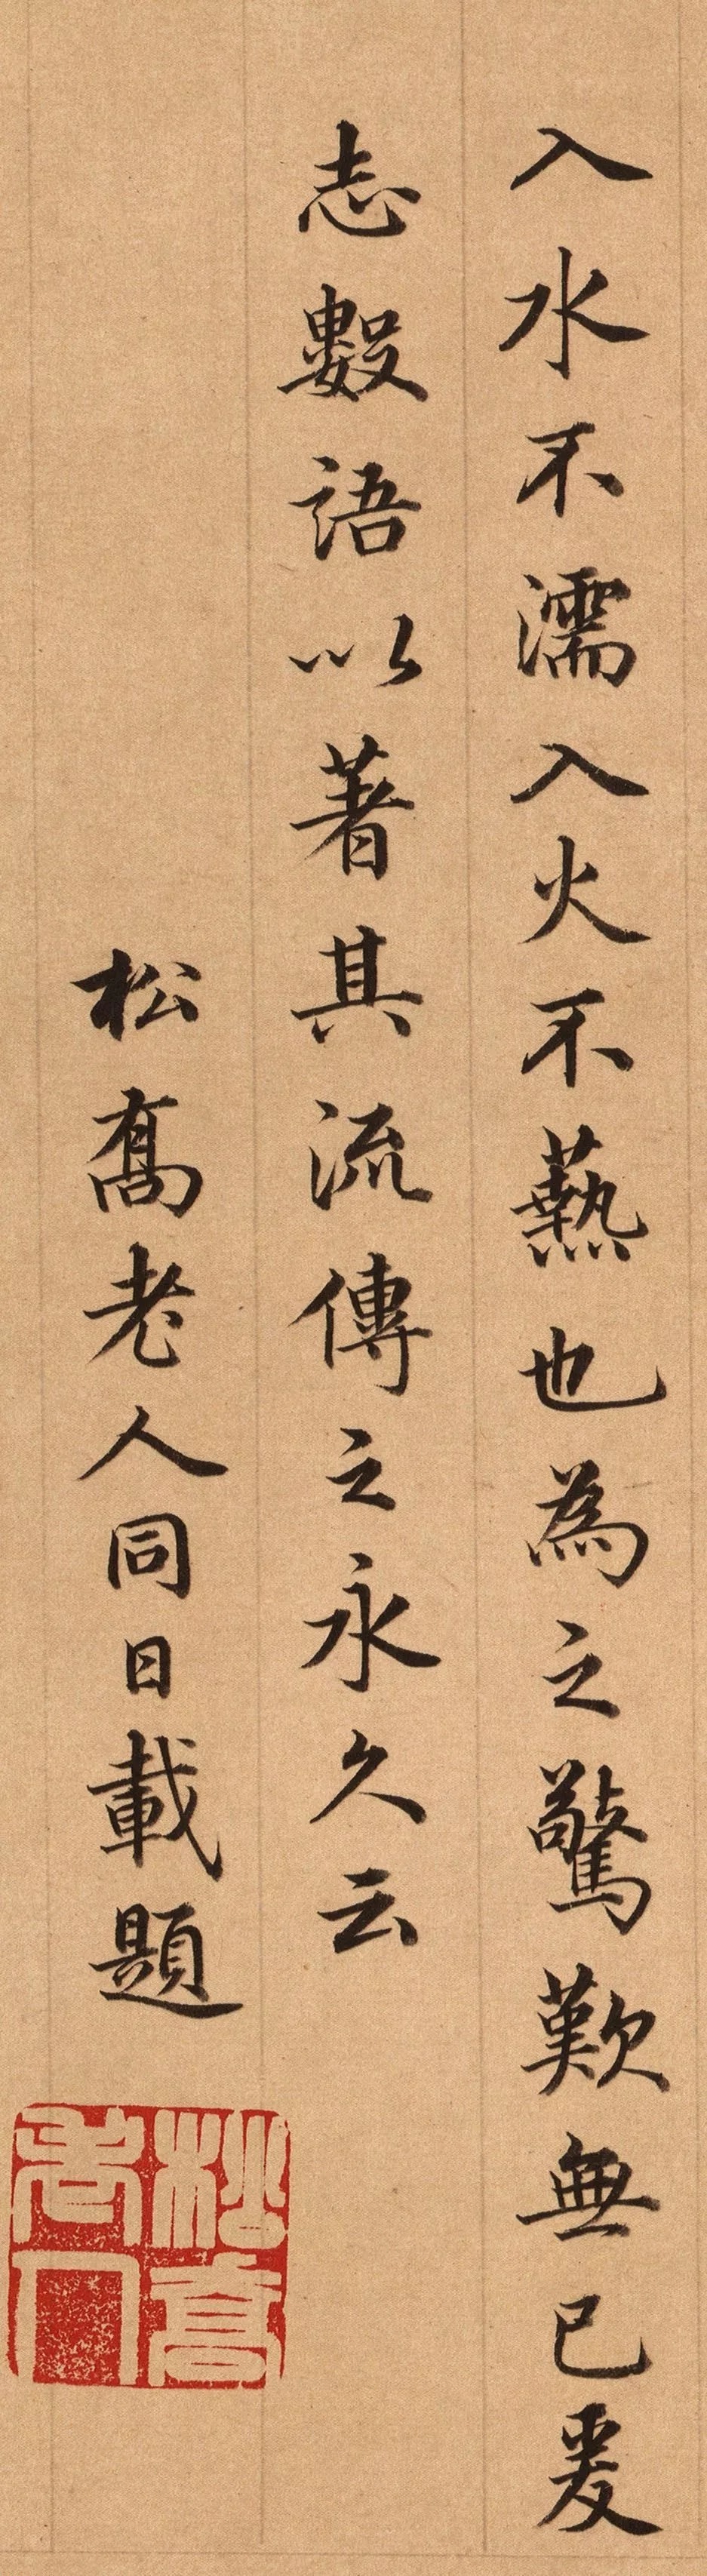 入水不濡入火不爇也為之驚歎無已爰
志數語以著其流傳之永久云
松喬老人同日載題
松喬老人